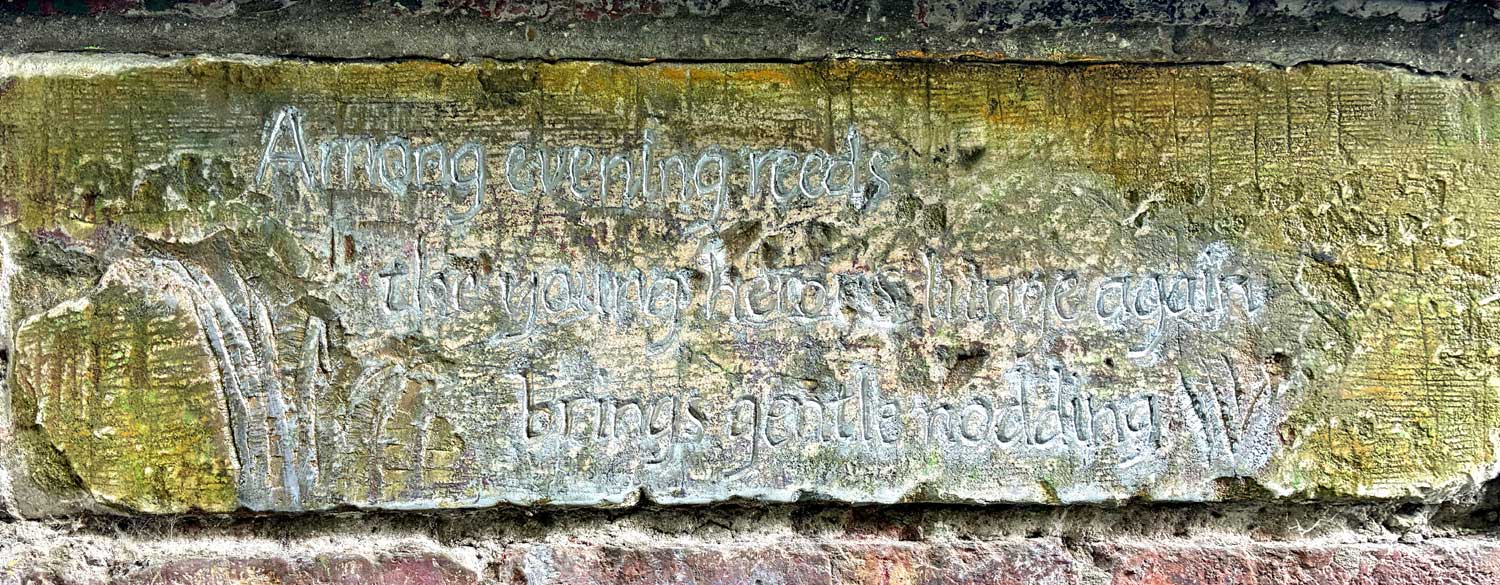 Among evening reeds
the young herons lunge again
brings gentle nodding